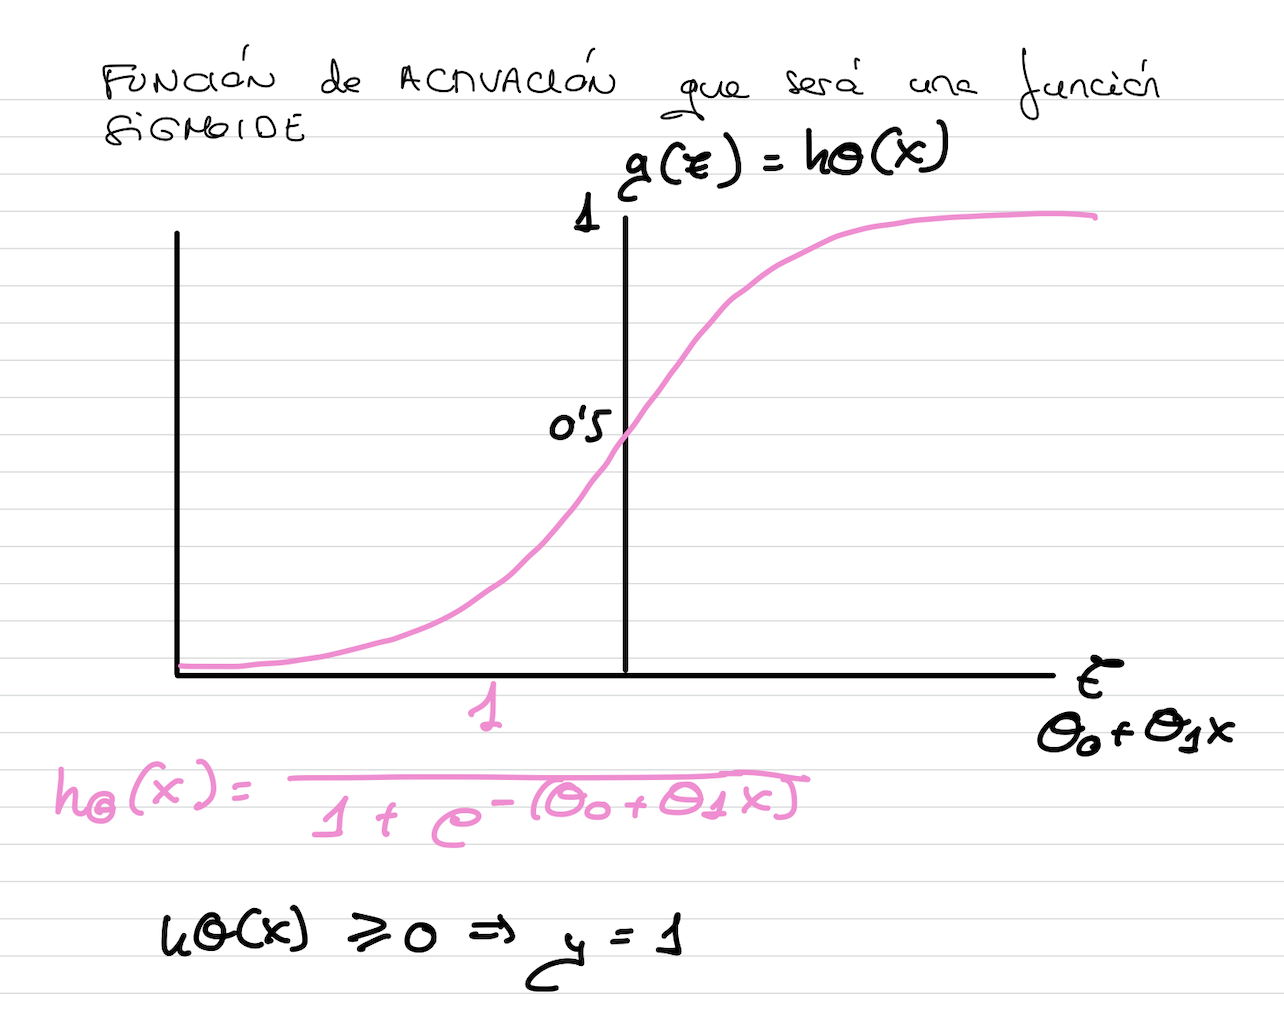 FUNCIÓN de ACTIVACIÓN que será una función
SIGMOIDE
g(z) = hθ(x)
1
0'5
z
θ₀ + θ₁x
1
hθ(x) =
1 + e^-(θ₀ + θ₁x)
hθ(x) ⩾ 0 ⇒ y = 1